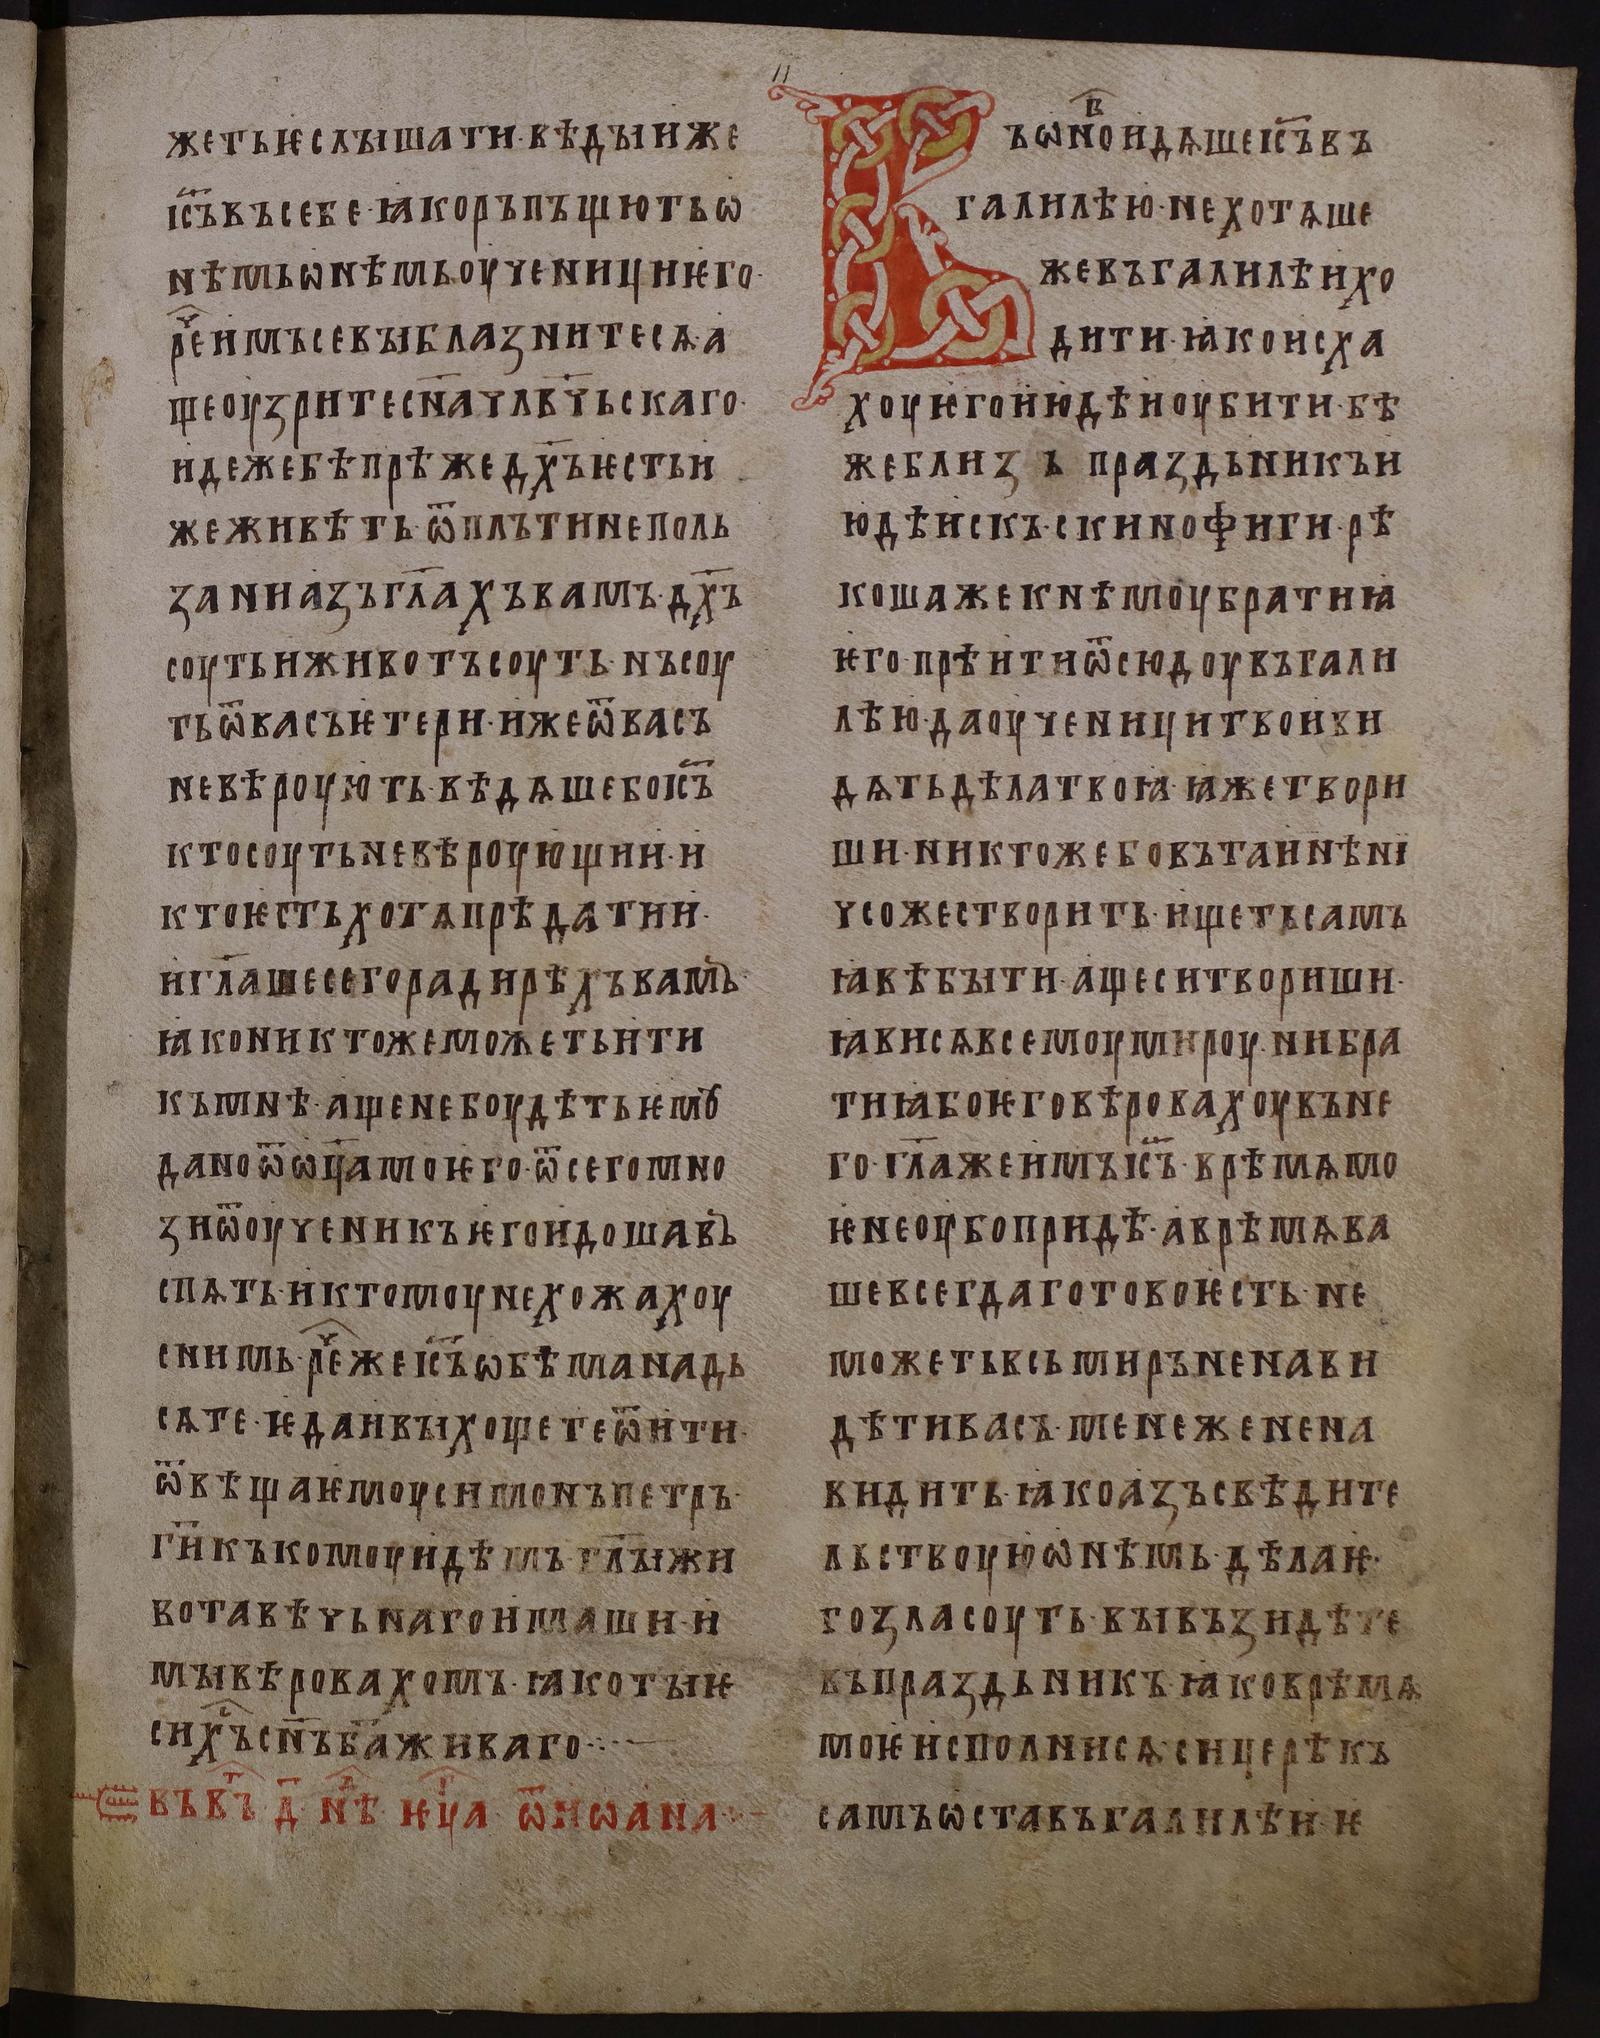 жетьѥслышати·вѣдыиже
іс҃ъвъсебе·ꙗкоръпъщютьѡ
нѣмьѡнѣмьоученициѥго·
реⷱ҇имъсевыблазнитесѧ·а
щеоузритесн҃ачл҃вч҃ьскаго·
идежебѣпрѣжедх҃ъѥстьи
жеживѣть·ѿплътинеполь
заниазъгл҃ахъвамъ·дх҃ъ
соутьиживотъсоуть·нъсоу
тьѿвасъѥтери·ижеѿвасъ
невѣроують·вѣдѧшебоіс҃ъ
ктосоутьневѣроующии·и
ктоѥстьхотѧпрѣдатии·
игл҃ашесегорадирѣхъвамъ·
ꙗконитожеможетьити
къмнѣ·ащенебоудѣтьѥмоу
даноѿѡц҃амоѥго·ѿсегомно
зиѿоученикъѥгоидошавъ
спѧть·иктомоунехожахоу
снимь·реⷱ҇жеіс҃ъѡбѣманадь
сѧте·ѥдаивыхощетеѿити·
ѿвѣщаѥмоусимонъпетръ·
ги҃къкомоуидѣмъ·гл҃ыжи
вотавѣчьнагоимаши·и
мывѣровахомъ·ꙗкотыѥ
сихⷭ҇ъсн҃ъба҃живаго·:·—
въвⷮъ д҃ нⷣѣ ѥⷢца ѿиѡана·:·
Въѡноⷡидѧшеіс҃ъвъ
галилѣю·нехотѧше
жевъгалилѣихо
дити·ꙗкоисха
хоуѥгоиюдѣиоубити·бѣ
жеблизъ праздьникъи
юдѣискъ·скинофиги·рѣ
кошажекнѣмоубратиꙗ
ѥго·прѣитиѿсюдоувъгали
лѣю·даоученицитвоиви
дѧтьдѣлатвоꙗ·ꙗжетвори
ши·никтожебовътаинѣні
чсожестворить·ищетьсамъ
ꙗвѣбыти·ащеситвориши·
ꙗвисѧвсемоумироу·нибра
тиꙗбоѥговѣровахоувъне
го·гл҃ажеимъіс҃ъ·врѣмѧмо
ѥнеоубопридѣ·аврѣмѧва
шевсегдаготовоѥсть·не
можетьвсьмиръненави
дѣтивасъ·мененеженена
видить·ꙗкоазъсвѣдите
льствоуюѡнѣмь·дѣлаѥ·
гозласоуть·вывъзидѣте
въпраздьникъ·ꙗковрѣмѧ
моѥисполнисѧ·сицерѣкъ
самъѡставъгалилѣи·ѥ